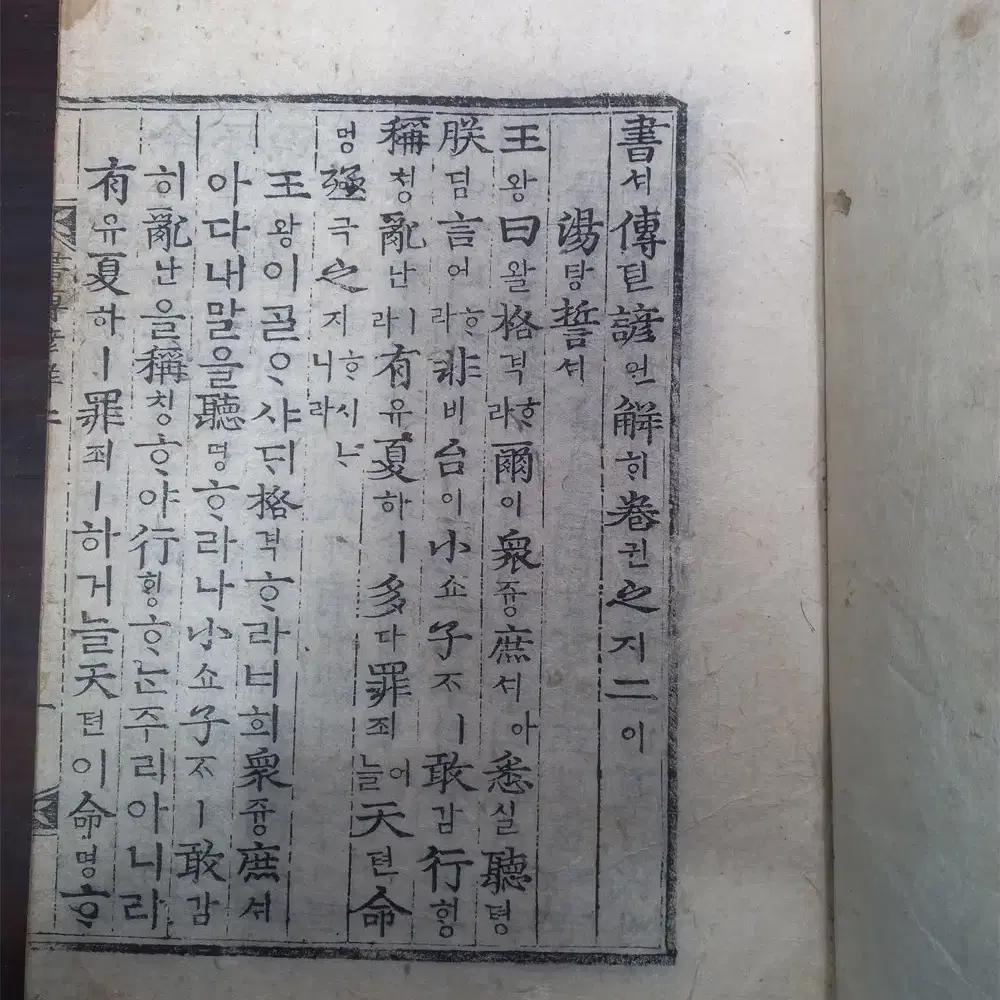 書셔傳뎐諺언解ᄒᆡ卷권之지二이
湯탕誓셔
王왕曰왈格격ᄒᆞ라爾이衆즁庶셔아悉실聽텽
朕딤言언ᄒᆞ라非비台이小쇼子ᄌᆞㅣ敢감行ᄒᆡᆼ
稱칭亂난ㅣ라有유夏하ㅣ多다罪죄어늘天텬命
명殛극之지ᄒᆞ시ᄂᆞ니라
王왕이ᄀᆞᆯᄋᆞ샤ᄃᆡ格격ᄒᆞ라너희衆즁庶셔
아다내말을聽텽ᄒᆞ라나小쇼子ᄌᆞㅣ敢감
히亂난을稱칭ᄒᆞ야行ᄒᆡᆼᄒᆞᄂᆞᆫ주리아니라
有유夏하ㅣ罪죄ㅣ하거늘天텬이命명ᄒᆞ